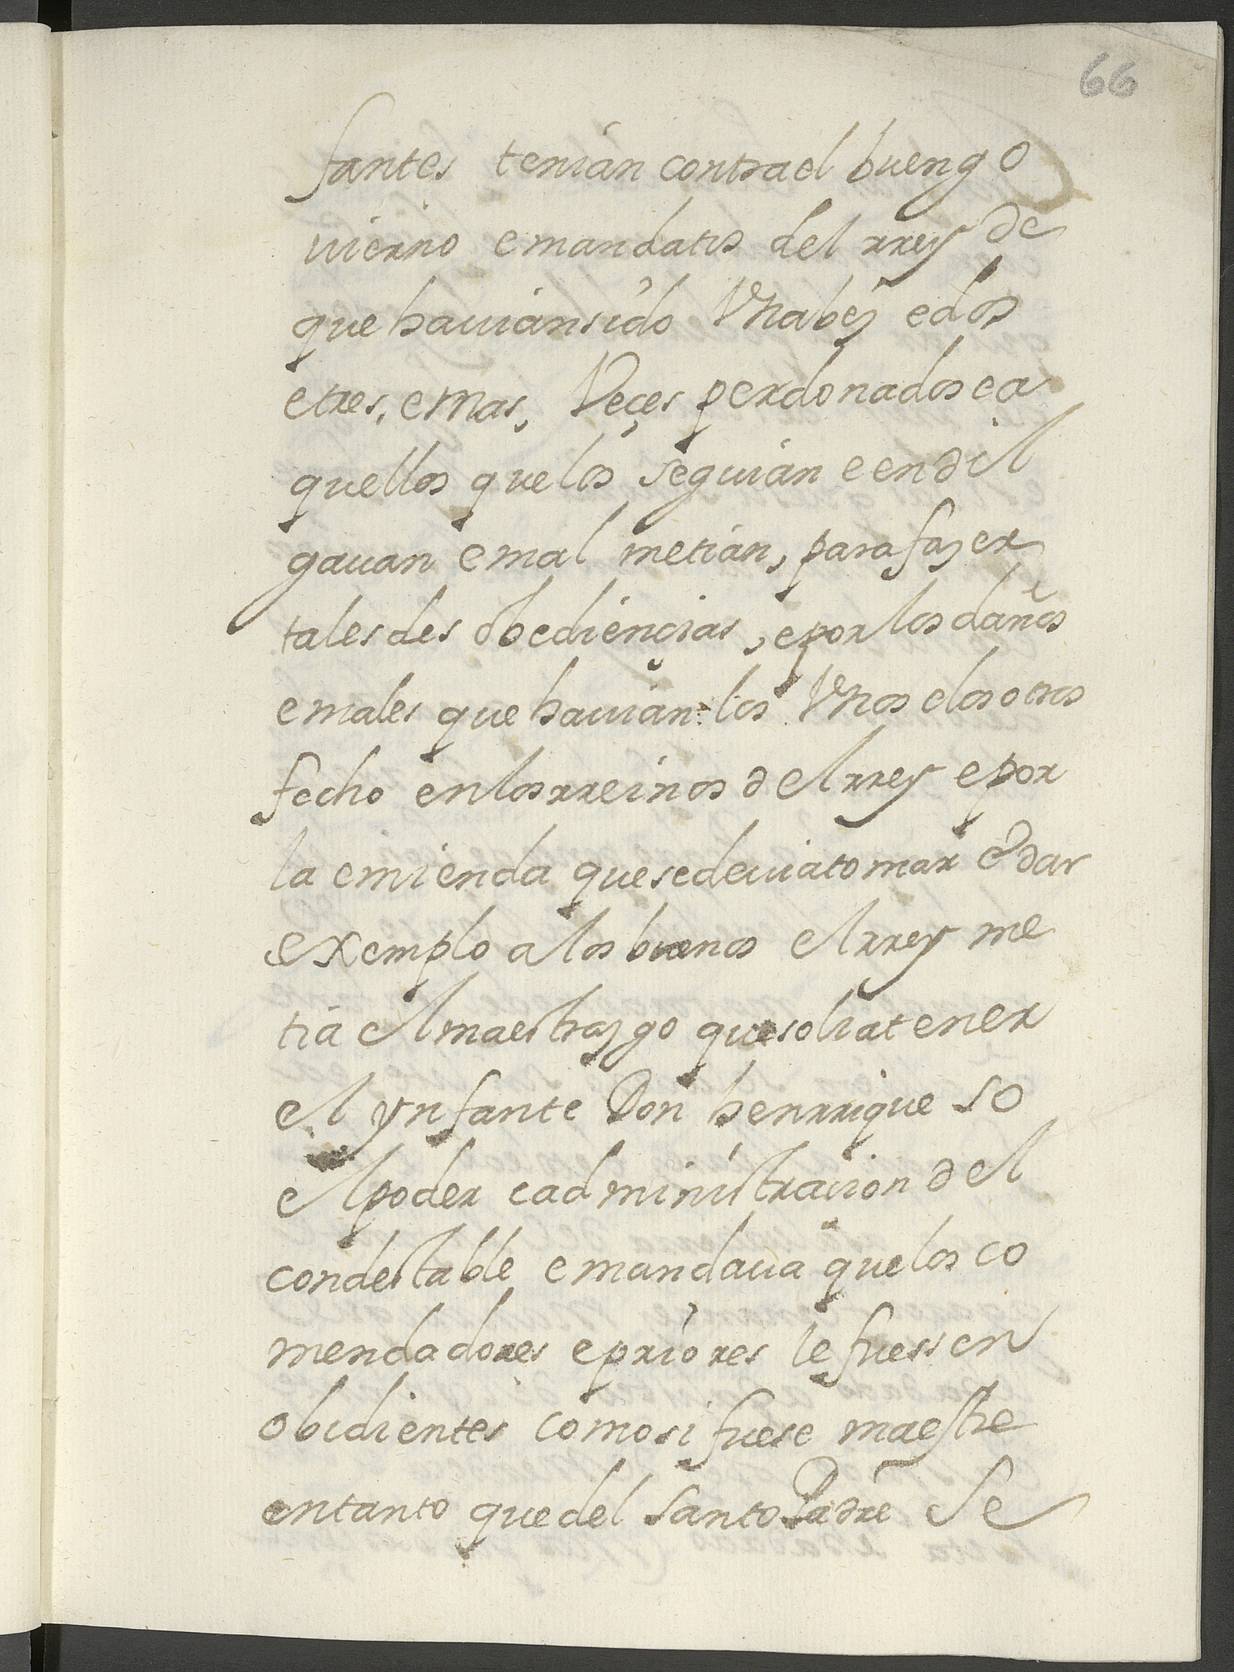 66
fantes tenian contra el buen go
uierno e mandatos del rrey de
que hauian sido Vna bez e dos
e tres, e mas, Veçes perdonados e a
quellos que los seguian e endil
gauan e mal metian, para fazer
tales des obediençias, e por los daños
e males que hauian los Vnos e los otros
fecho en los rreinos del rrey e por
la emienda que se deuia tomar & dar
exemplo a los buenos el rrey me
tia el maestrazgo que solia tener
el ynfante Don henrrique so
el poder e administracion del
condestable e mandaua que los co
mendadores e priores le fuessen
obidientes como si fuese maestre
entanto que del Santo Padre Se